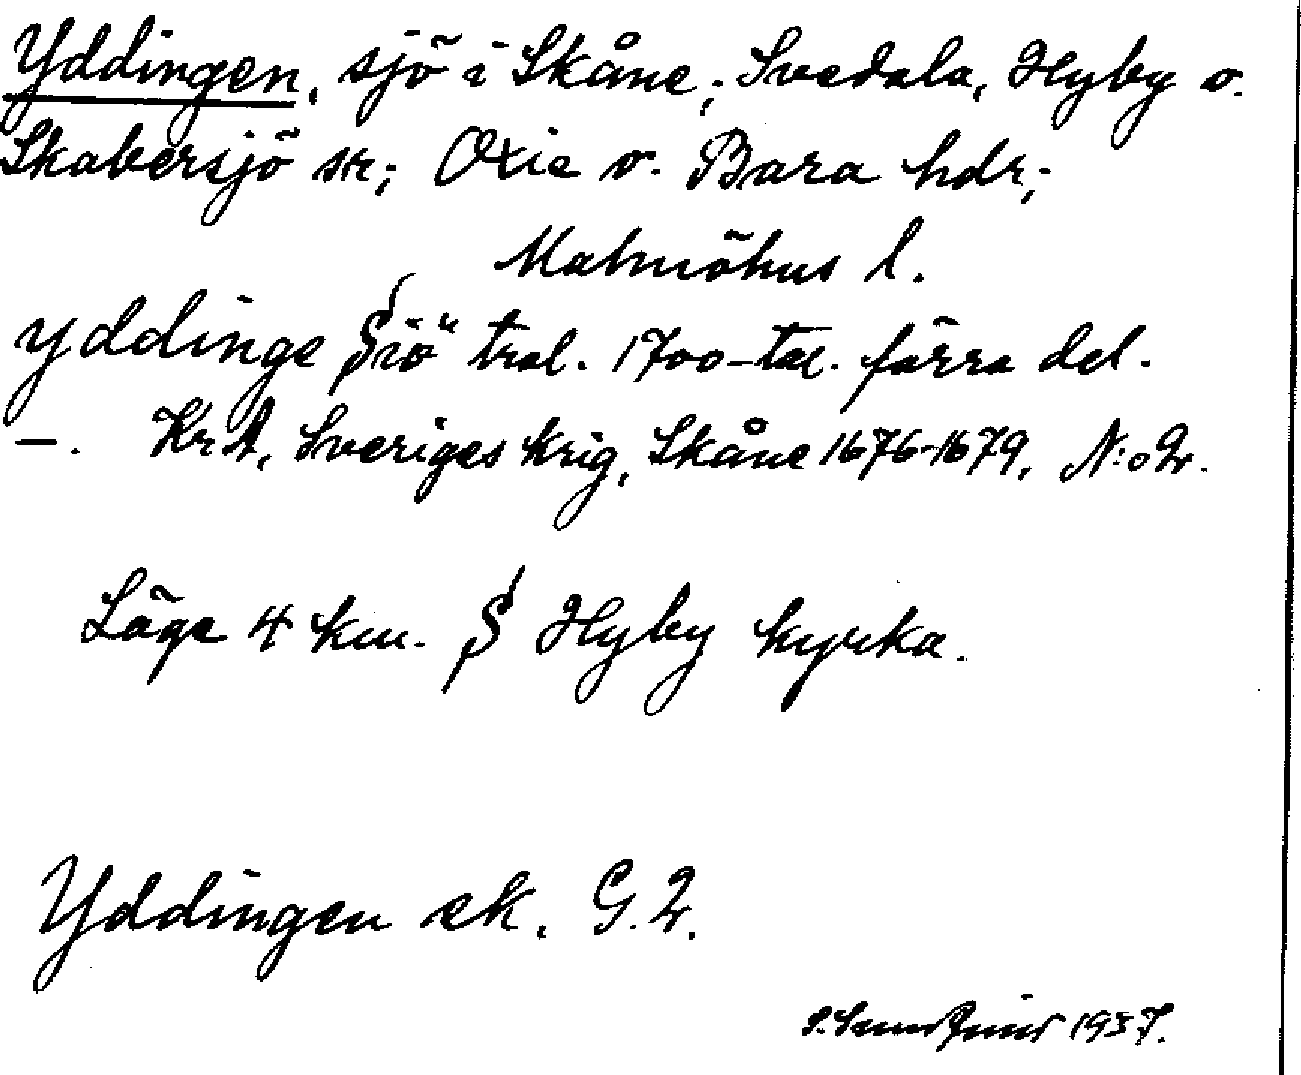 Yddingen, sjö i Skåne; Svedala, Hyby o.
Skabersjö sr; Oxie o. Bara hdr;
Malmöhus l.
Yddinge Siö trol. 1700-tal. förra del.
–. KrA, Sveriges krig, Skåne 1676-1679, N:o 2.
Läge 4 km. S Hyby kyrka.
Yddingen ek. G. 2.
1937.